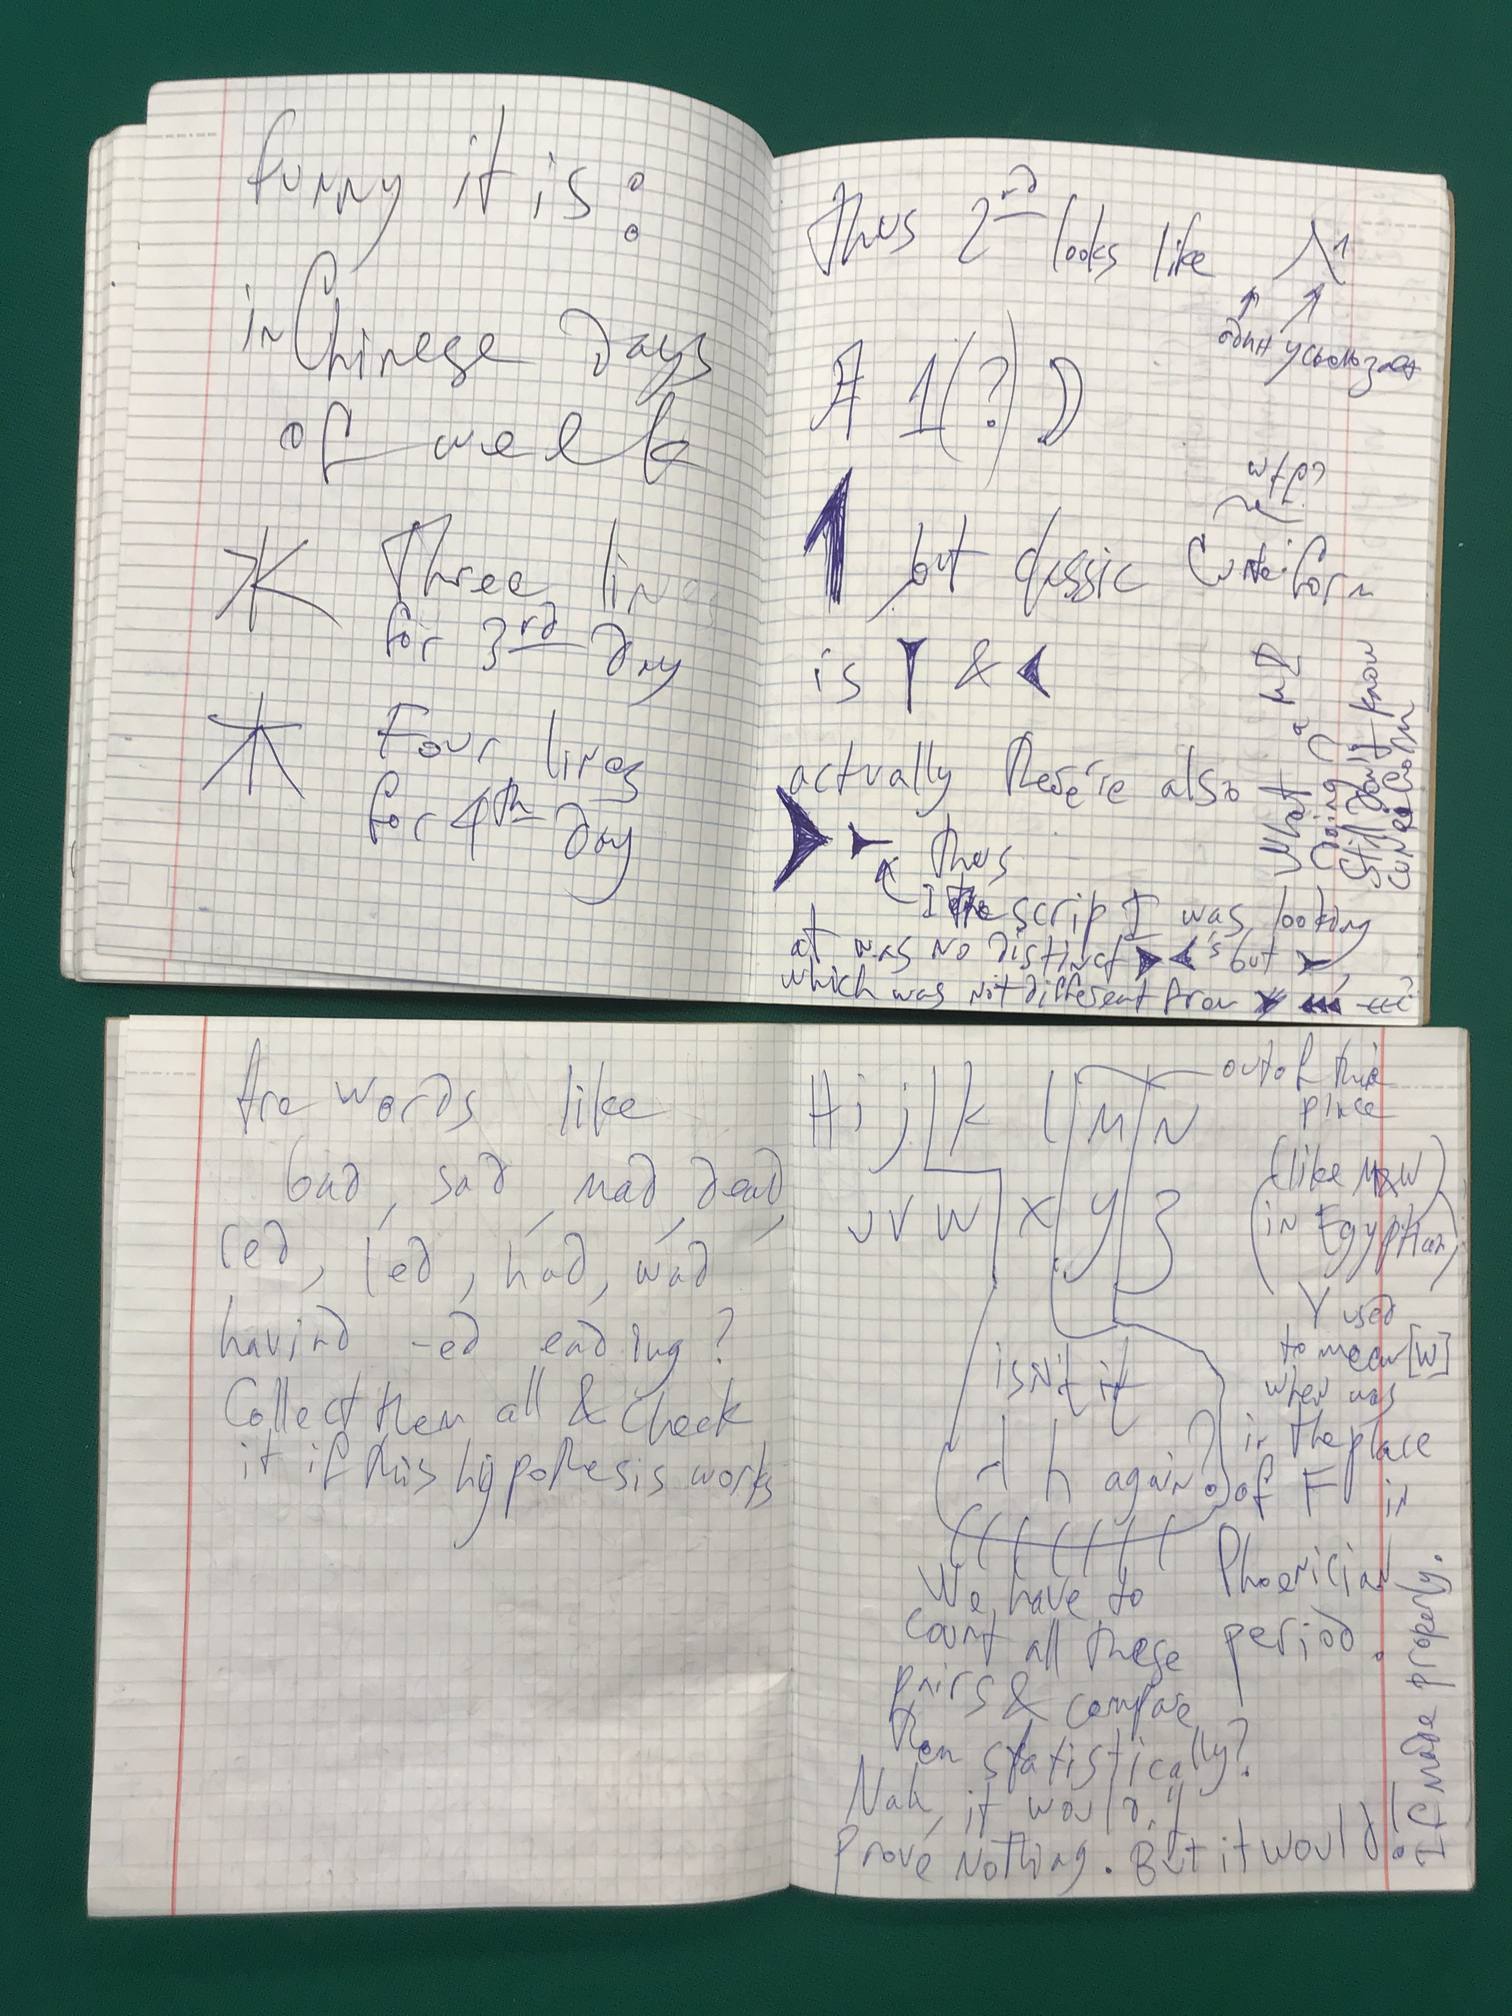 funny it is:
in Chinese days
of week
水 Three lines
for 3rd day
木 Four lines
for 4th day
thus 2nd looks like 人1
один ускользает
A 1(?) D
wtf?
but classic Cuneiform
is &
actually there're also
thus
I the script I was looking
at was no distinct 's but
which was not different from
What a мД
doing?
Still don't know
cuneiform
Are words like
bad, sad, mad, dead,
red, led, had, wad
havind -ed ending?
Collect them all & check
it if this hypothesis works
H i j k l M N
out of this
place
(like M&W
in Egyptian)
u v w x y z
Y used
to mean [w]
when was
in the place
of F in
Phoenician
period.
isn't it
d h again?
We have to
count all these
pairs & compare
them statistically?
Nah, it would
prove nothing. But it would!
If made properly.